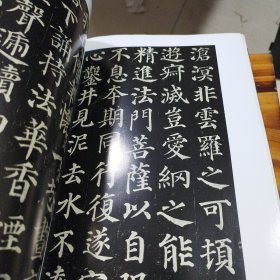 滄溟非雲羅之可頓
遊寂滅豈愛網之能
精進法門菩薩以自
不息本期同行復遂
心鑿井見泥去水不
下誦持法華香煙
聲遞續